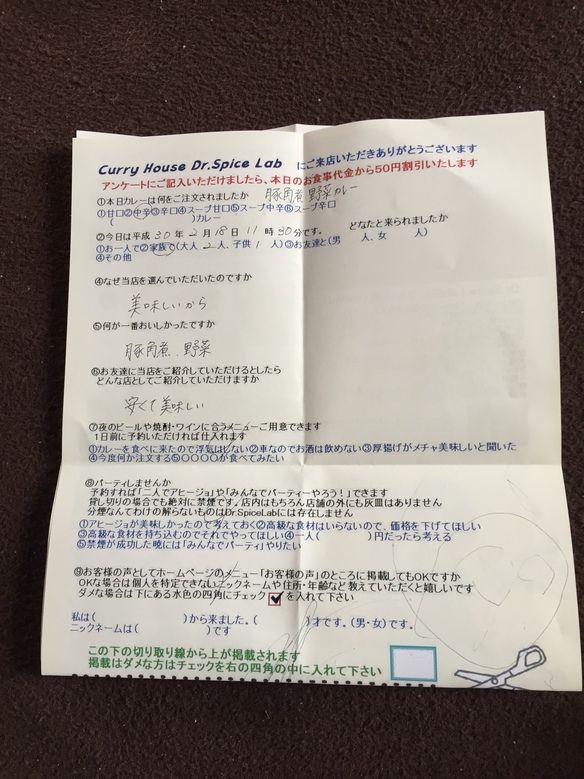 Curry House Dr.Spice Lab にご来店いただきありがとうございます
アンケートにご記入いただけましたら、本日のお食事代金から50円割引いたします
①本日カレーは何をご注文されましたか 豚角煮 野菜カレー
①甘口②中辛③辛口④スープ甘口⑤スープ中辛⑥スープ辛口
( )カレー
②今日は平成 30 年 2 月 18 日 11 時 30 分です。 どなたと来られましたか
①お一人で②家族で(大人 2 人、子供 1 人)③お友達と(男 人、女 人)
④その他
④なぜ当店を選んでいただいたのですか
美味しいから
⑤何が一番おいしかったですか
豚角煮、野菜
⑥お友達に当店をご紹介していただけるとしたら
どんな店としてご紹介していただけますか
安くて美味しい
⑦夜のビールや焼酎・ワインに合うメニューご用意できます
1日前に予約いただければ仕入れます
①カレーを食べに来たので浮気はしない②車なのでお酒は飲めない③厚揚げがメチャ美味しいと聞いた
④今度何か注文する⑤〇〇〇〇が食べてみたい
⑧パーティしませんか
予約すれば「二人でアヒージョ」や「みんなでパーティーやろう!」できます
貸し切りの場合でも絶対に禁煙です。店内はもちろん店舗の外にも灰皿はありません
分煙なんてわけの解らないものはDr.SpiceLabには存在しません
①アヒージョが美味しかったので考えておく②高級な食材はいらないので、価格を下げてほしい
③高級な食材を持ち込むのでそれでやってほしい④一人( )円だったら考える
⑤禁煙が成功した暁には「みんなでパーティ」やりたい
⑨お客様の声としてホームページのメニュー「お客様の声」のところに掲載してもOKですか
OKな場合は個人を特定できないニックネームや住所・年齢など教えていただくと嬉しいです
ダメな場合は下にある水色の四角にチェック を入れて下さい
私は( )から来ました。( )才です。(男・女)です。
ニックネームは( )です
この下の切り取り線から上が掲載されます
掲載はダメな方はチェックを右の四角の中に入れて下さい